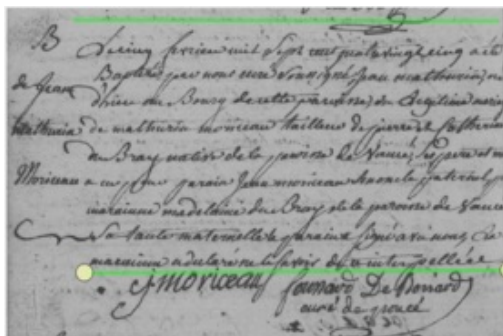 B
Le cinq fevrier mil sept cent quatre vingt cinq a été
Baptisé par nous curé soussigné jean mathurin
de jean
du Bourg de cette paroisse du legitime
mathurin
de mathurin moriceau tailleur de pierre et Catherine
du Bray native de la paroisse de Vancé, les pere et
Moriceau
a eu pour parain jean moriceau son oncle paternel
maraine madelaine du Bray de la paroisse de Vancé
Sa tante maternelle le parain signé avec nous
maraine a declaré ne le savoir de ce interpellée
j moriceau
curé de